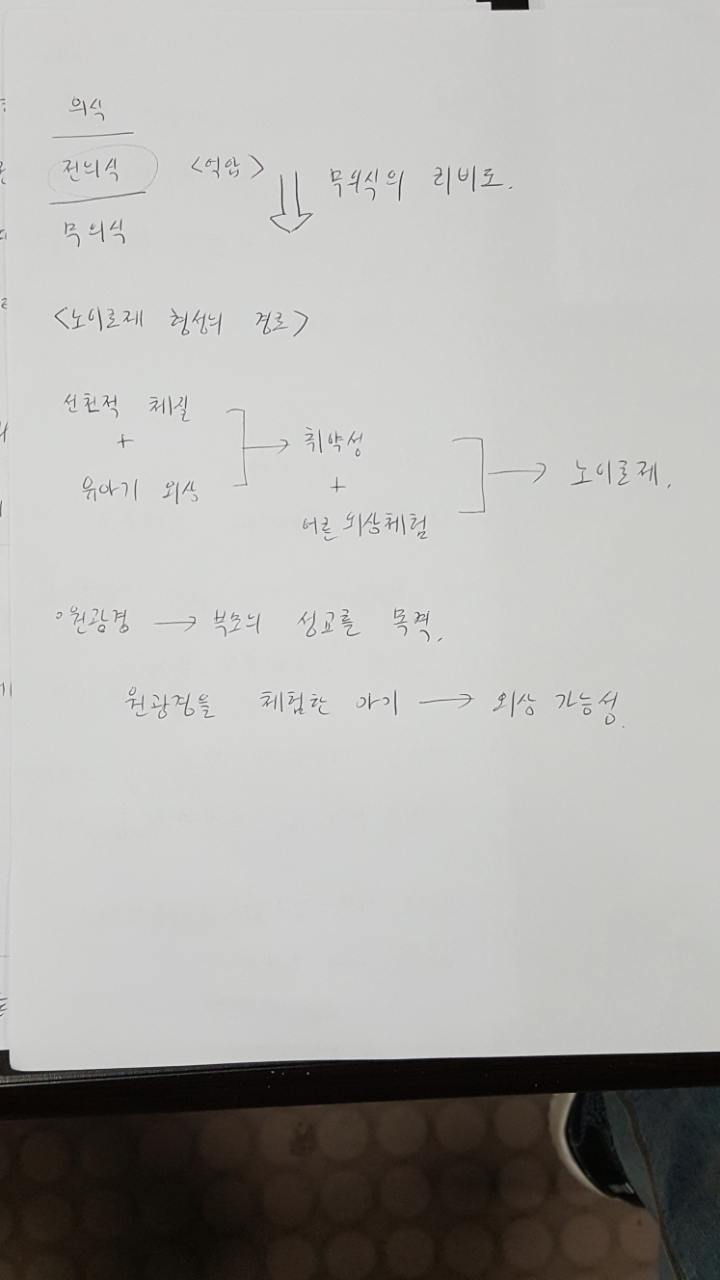 의식
전의식 <억압> ⇓ 무의식의 리비도.
무의식
<노이로제 형성의 경로>
선천적 체질
+
유아기 외상
→ 취약성
+
어른 외상체험
→ 노이로제.
◦원광경 → 부모의 성교를 목격.
원광경을 체험한 아기 → 외상 가능성.